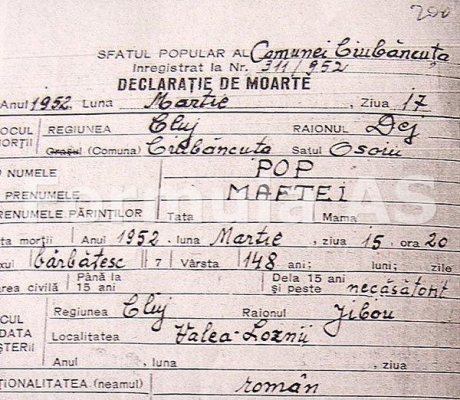 200
SFATUL POPULAR AL Comunei Ciubăncuța
Inregistrat la Nr. 311/952
DECLARAȚIE DE MOARTE
Anul 1952 Luna Martie, Ziua 17
LOCUL MORȚII REGIUNEA Cluj RAIONUL Dej
Orașul (Comuna) Ciubăncuta Satul Osoiu
NUMELE POP
PRENUMELE MAFTEI
PRENUMELE PĂRINȚILOR Tata Mama
ta morții Anul 1952, luna Martie, ziua 15, ora 20
xul bărbătesc 7 Vârsta 148 ani; luni; zile
area civilă Până la 15 ani Dela 15 ani și peste necăsătorit
CUL DATA ȘTERII Regiunea Cluj Raionul Jibou
Localitatea Valea-Loznii
Anul, luna, ziua
ȚIONALITATEA (neamul) român
formula AS